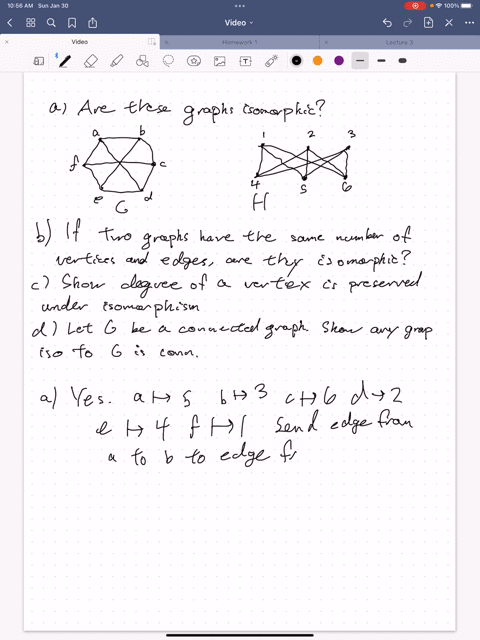 10:56 AM Sun Jan 30
100%
Video
Video
Homework 1
Lecture 3
a) Are these graphs isomorphic?
a b
f c
e d
G
1 2 3
4 5 6
H
b) If two graphs have the same number of
vertices and edges, are they isomorphic?
c) Show degree of a vertex is preserved
under isomorphism
d) Let G be a connected graph. Show any grap
iso to G is conn.
a) Yes. a ↦ 5 b ↦ 3 c ↦ 6 d → 2
e ↦ 4 f ↦ 1 Send edge from
a to b to edge fr